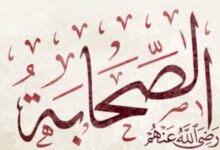 الصَّحَابَةُ
رضي الله عنهم